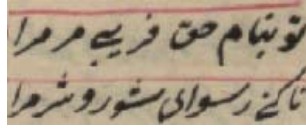 تو بنام حق فریبی مر مرا
تا کنی رسوای شور و شر مرا